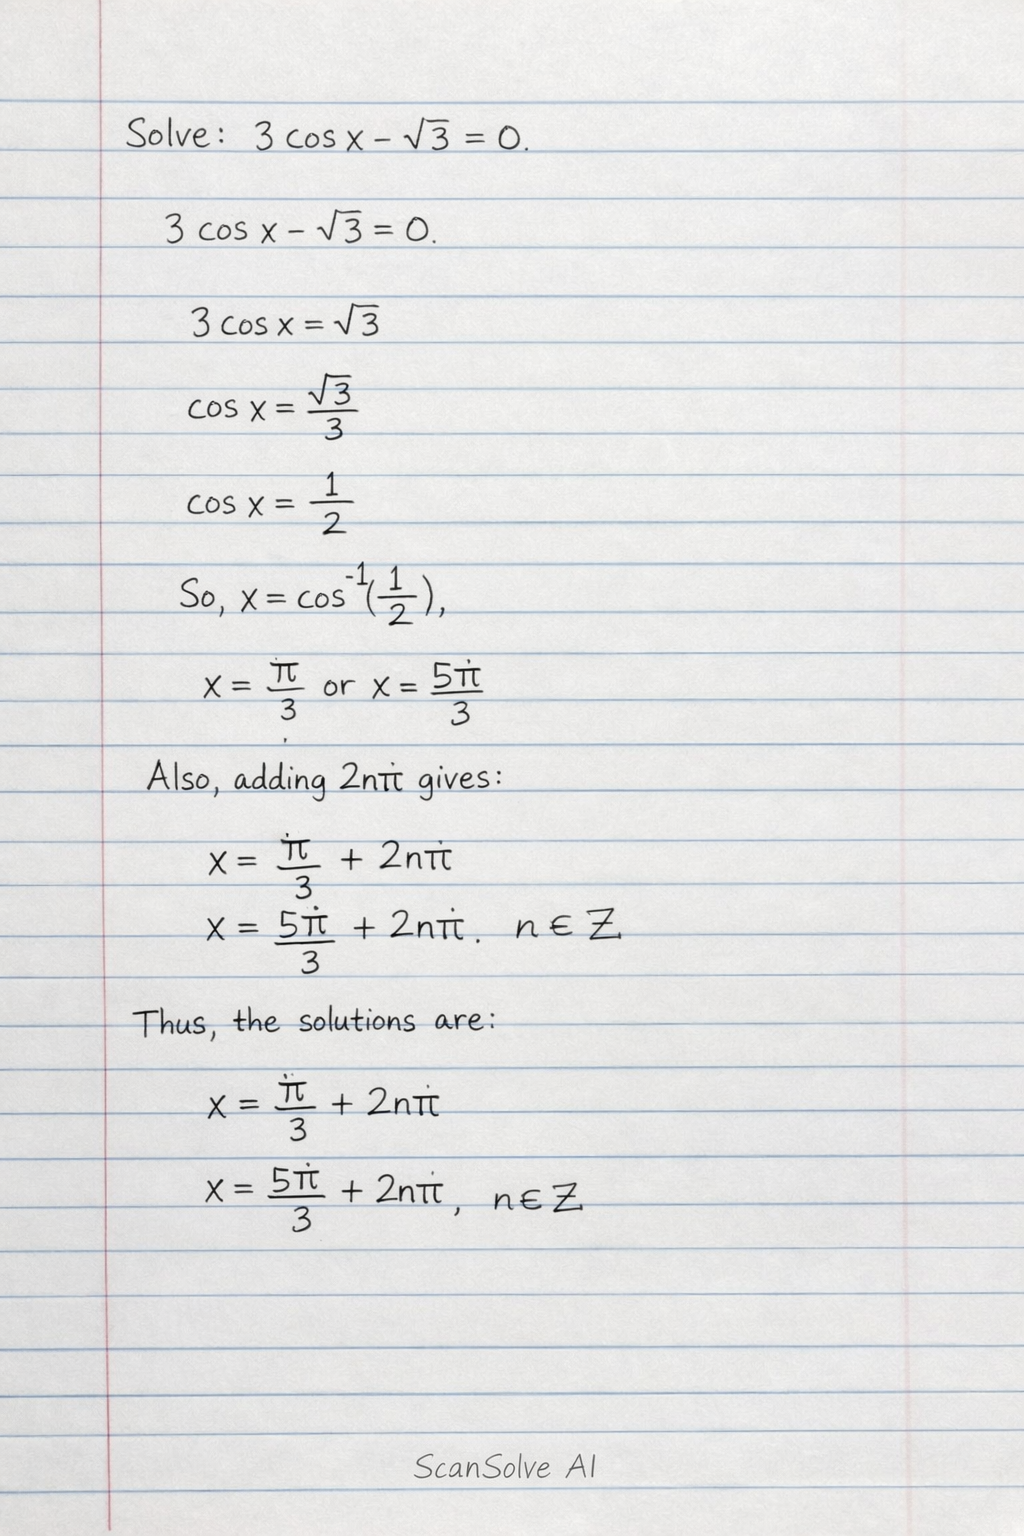 Solve: 3 cos x - √3 = 0.
3 cos x - √3 = 0.
3 cos x = √3
cos x = √3/3
cos x = 1/2
So, x = cos⁻¹(1/2),
x = π/3 or x = 5π/3
Also, adding 2nπ gives:
x = π/3 + 2nπ
x = 5π/3 + 2nπ. n ∈ Z
Thus, the solutions are:
x = π/3 + 2nπ
x = 5π/3 + 2nπ, n ∈ Z
ScanSolve AI